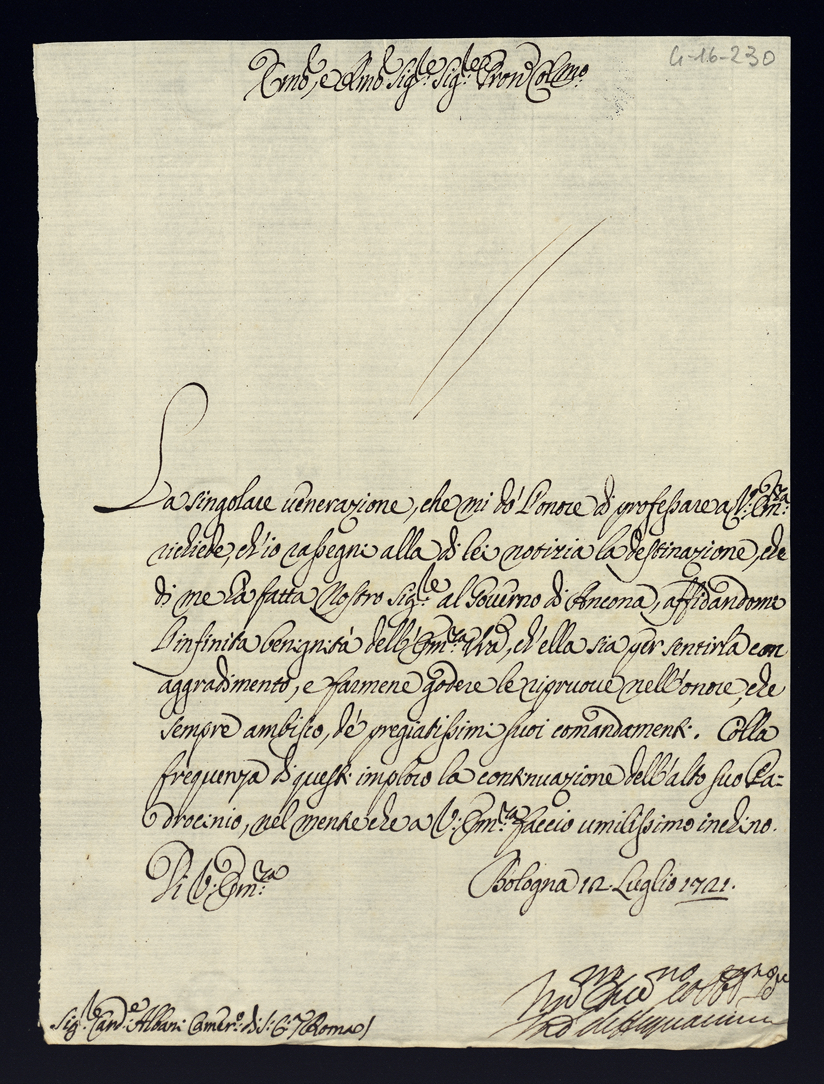 G-16-230
Em̃o, e Rm̃o Sig.re Sig.re Pron Col.mo
La singolare venerazione, che mi dò l'onore di professare a V: Em.za
richiede, ch'io rassegni alla di lei notizia la destinazione, che
di me hà fatta Nostro Sig.re al Governo di Ancona, affidandomi
l'infinita benignità dell'Em.za Vrã, ch'ella sia per sentirla con
aggradimento, e farmene godere le riprove nell'onore, che
sempre ambisco, de' pregiatissimi suoi comandamenti. Colla
frequenza di questi imploro la continuazione dell'alto suo Pa-
drocinio, nel mentre che a V: Em.za faccio umilissimo inchino.
Di V: Em.za
Bologna 12. Luglio 1721.
Sig.re Card.le Albani Camer.o di S: C: Roma